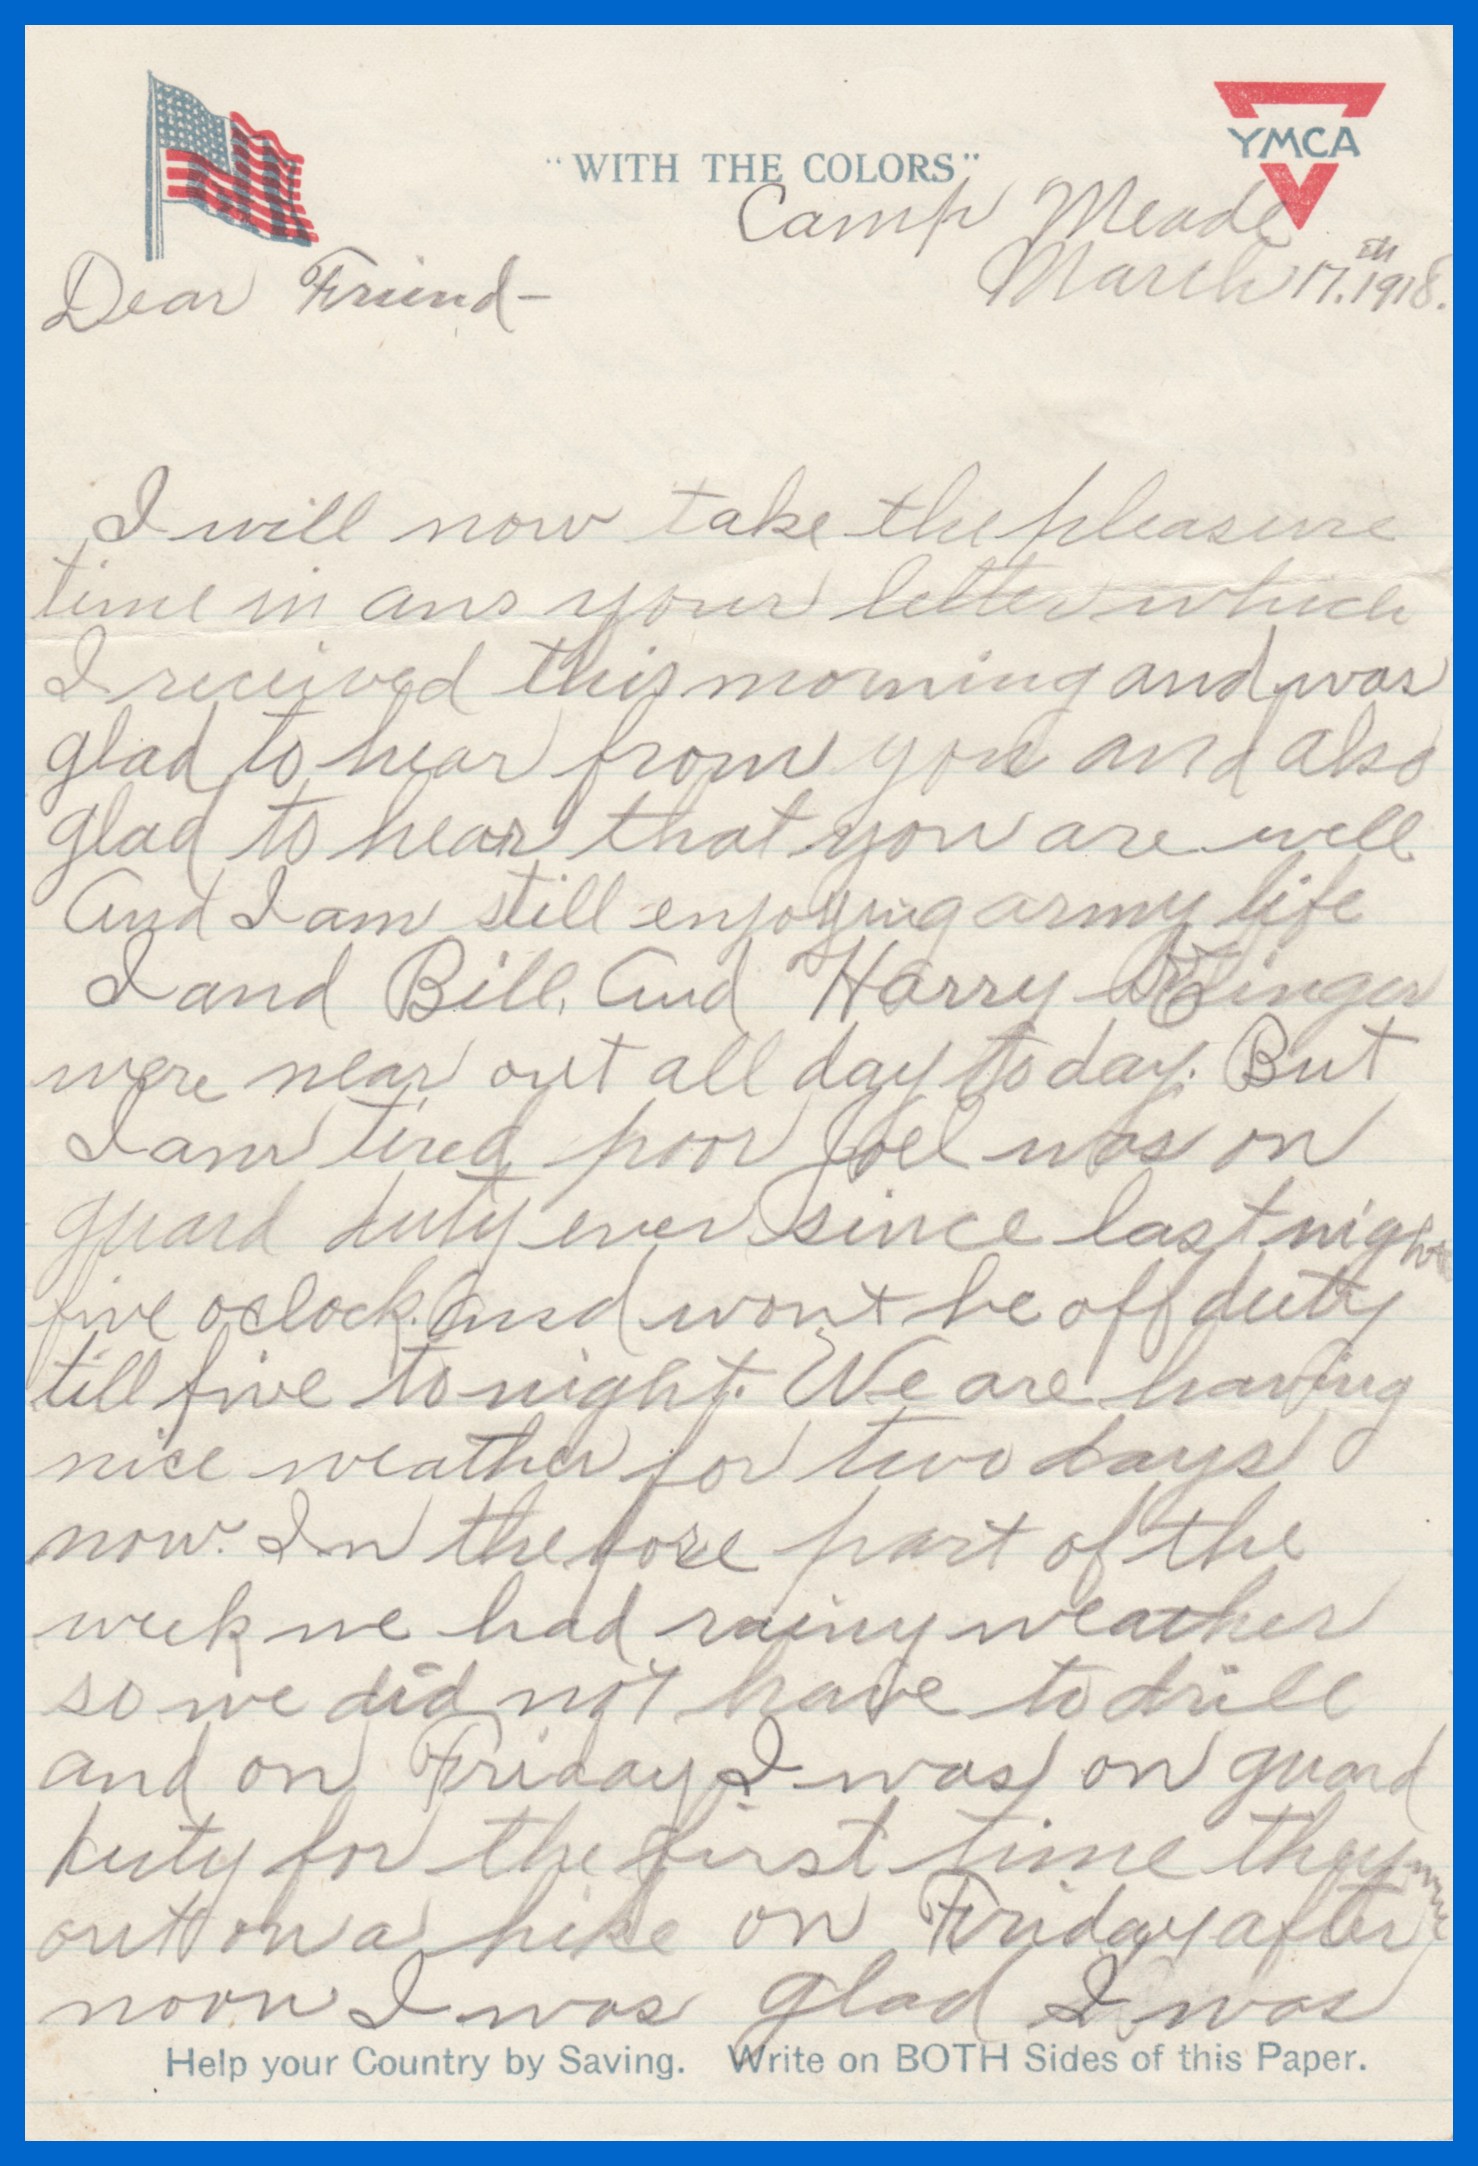 "WITH THE COLORS"
YMCA
Camp Meade
March 17.th 1918.
Dear Friend-
I will now take the pleasure
time in ans your letter which
I received this morning and was
glad to hear from you and also
glad to hear that you are well
And I am still enjoying army life
I and Bill, And Harry
were near out all day to day. But
I am tired poor Joel was on
guard duty ever since last night
five oclock. And wont be off duty
till five to night. We are having
nice weather for two days
now. In the fore part of the
week we had rainy weather
so we did not have to drill
and on Friday I was on guard
duty for the first time they were
out on a hike on Friday after
noon I was glad I was
Help your Country by Saving. Write on BOTH Sides of this Paper.